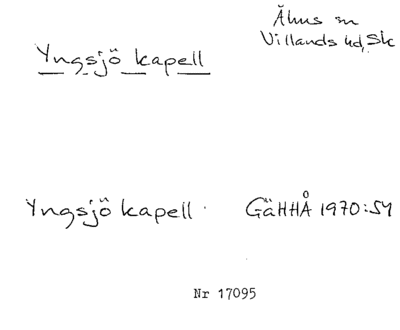 Yngsjö kapell
Åhus sn
Villands hd, Sk
Yngsjö kapell GÄHHÅ 1970:54
Nr 17095